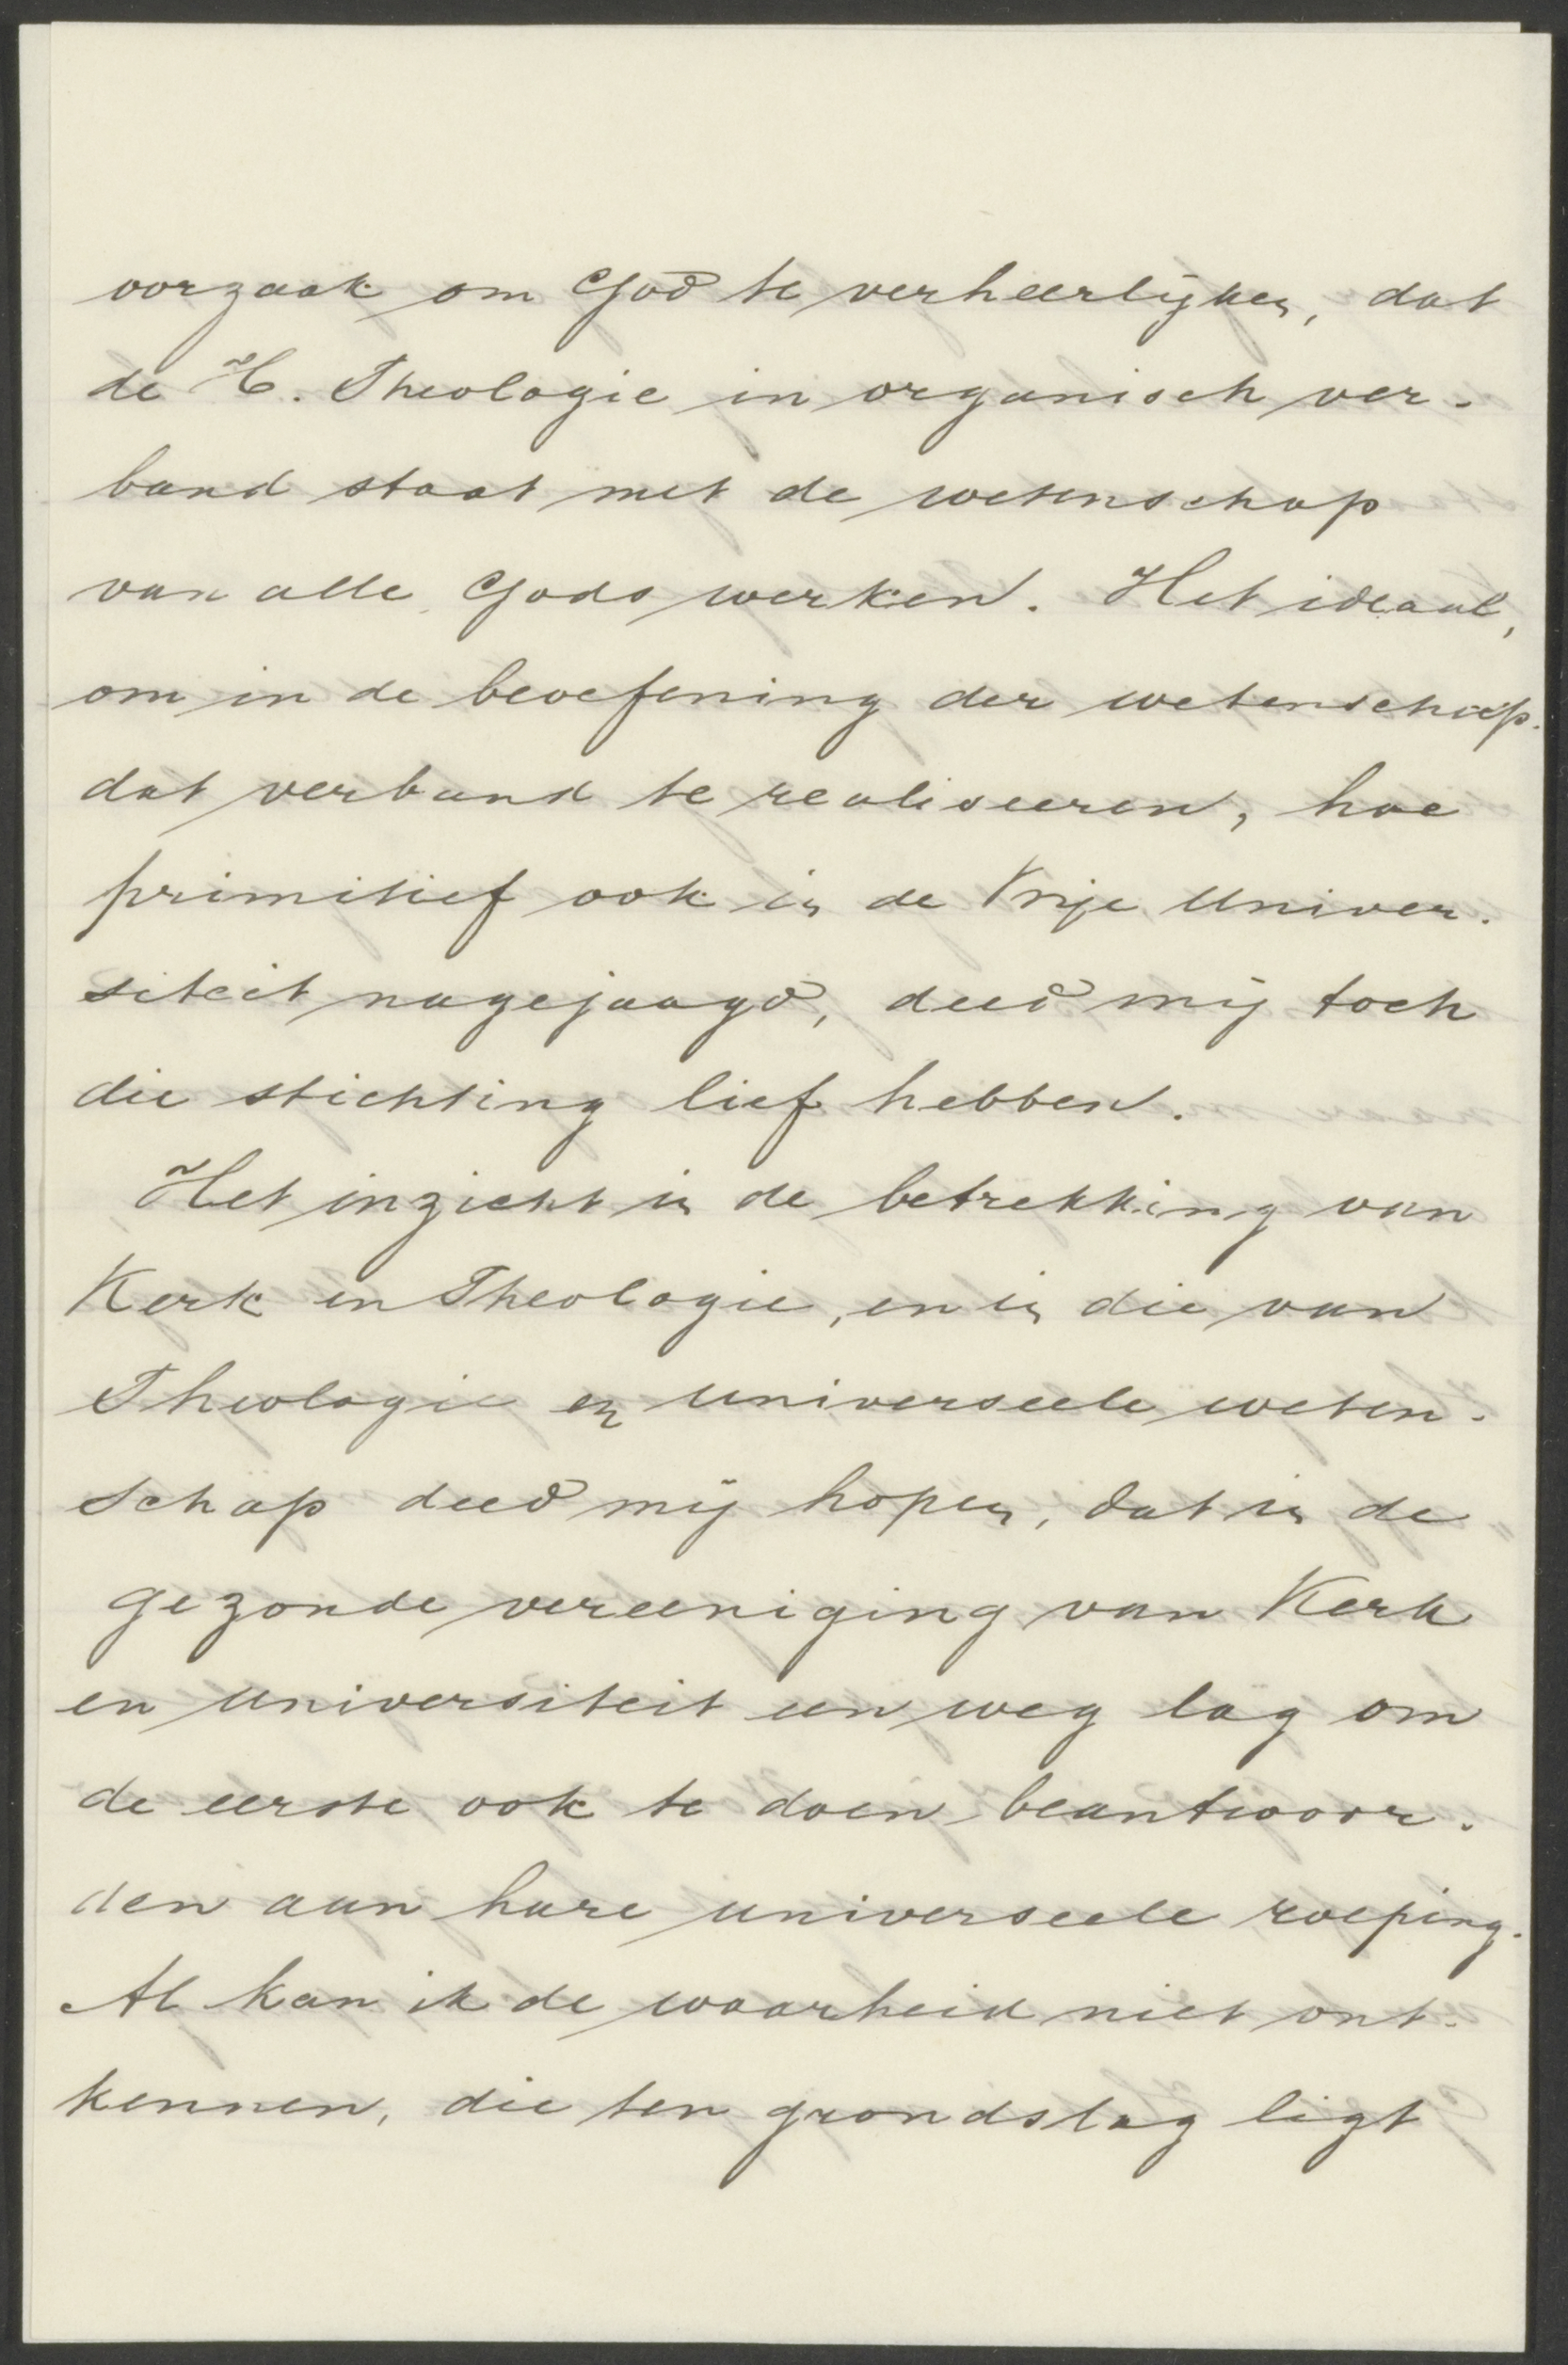 oorzaak om God te verheerlijken, dat
de H. Theologie in organisch ver-
band staat met de wetenschap
van alle Gods werken. Het ideaal,
om in de beoefening der wetenschap
dat verband te realiseeren, hoe
primitief ook in de Vrije Univer-
siteit nagejaagd, deed mij toch
die stichting lief hebben.
Het inzicht in de betrekking van
Kerk en Theologie, en in die van
Theologie en universeele weten-
schap deed mij hopen, dat in de
gezonde vereeniging van Kerk
en universiteit een weg lag om
de eerste ook te doen beantwoor-
den aan hare universeele roeping.
Al kan ik de waarheid niet ont-
kennen, die ten grondslag ligt